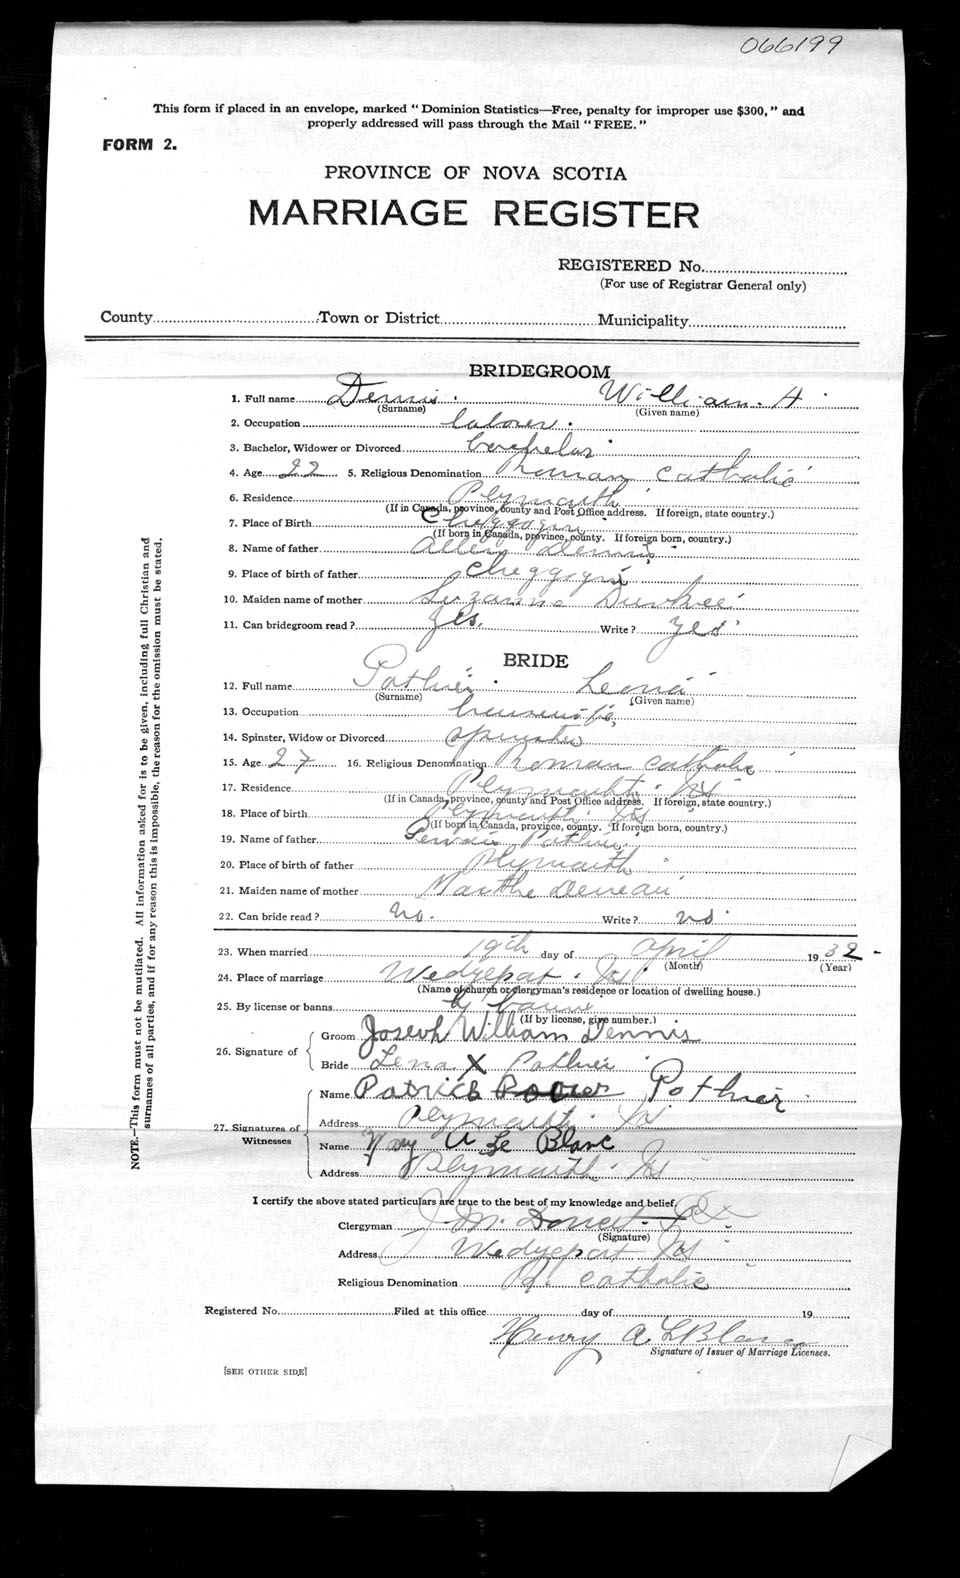 066199
This form if placed in an envelope, marked “Dominion Statistics—Free, penalty for improper use $300,” and
properly addressed will pass through the Mail “FREE.”
FORM 2.
PROVINCE OF NOVA SCOTIA
MARRIAGE REGISTER
REGISTERED No.
(For use of Registrar General only)
County Town or District Municipality
BRIDEGROOM
1. Full name Dennis William. H
(Surname) (Given name)
2. Occupation laborer.
3. Bachelor, Widower or Divorced
4. Age 22 5. Religious Denomination Roman Catholic
6. Residence Plymouth
(If in Canada, province, county and Post Office address. If foreign, state country.)
7. Place of Birth Cheggogin
(If born in Canada, province, county. If foreign born, country.)
8. Name of father Allen Dennis
9. Place of birth of father Cheggogin
10. Maiden name of mother Suzanne Durkee
11. Can bridegroom read? yes. Write? yes
BRIDE
12. Full name Pothier Lena
(Surname) (Given name)
13. Occupation
14. Spinster, Widow or Divorced spinster
15. Age 27 16. Religious Denomination Roman Catholic
17. Residence Plymouth. NS
(If in Canada, province, county and Post Office address. If foreign, state country.)
18. Place of birth Plymouth. NS
(If born in Canada, province, county. If foreign born, country.)
19. Name of father Pothier
20. Place of birth of father Plymouth
21. Maiden name of mother Marthe Deveau
22. Can bride read? no. Write? no
23. When married 19th day of April 1932-
(Month) (Year)
24. Place of marriage Wedgeport. NS
(Name of church or clergyman's residence or location of dwelling house.)
25. By license or banns by banns
(If by license, give number.)
26. Signature of
Groom Joseph William Dennis
Bride Lena X Pothier
27. Signatures of Witnesses
Name Patrick Pothier
Address Plymouth. NS
Name Mary A Le Blanc
Address Plymouth. NS
I certify the above stated particulars are true to the best of my knowledge and belief,
Clergyman J. M. Doucet
(Signature)
Address Wedgeport NS
Religious Denomination R. Catholic
Registered No. Filed at this office day of 19
Henry A LeBlanc
Signature of Issuer of Marriage Licenses.
[SEE OTHER SIDE]
NOTE.—This form must not be mutilated. All information asked for is to be given, including full Christian and
surnames of all parties, and if for any reason this is impossible, the reason for the omission must be stated.